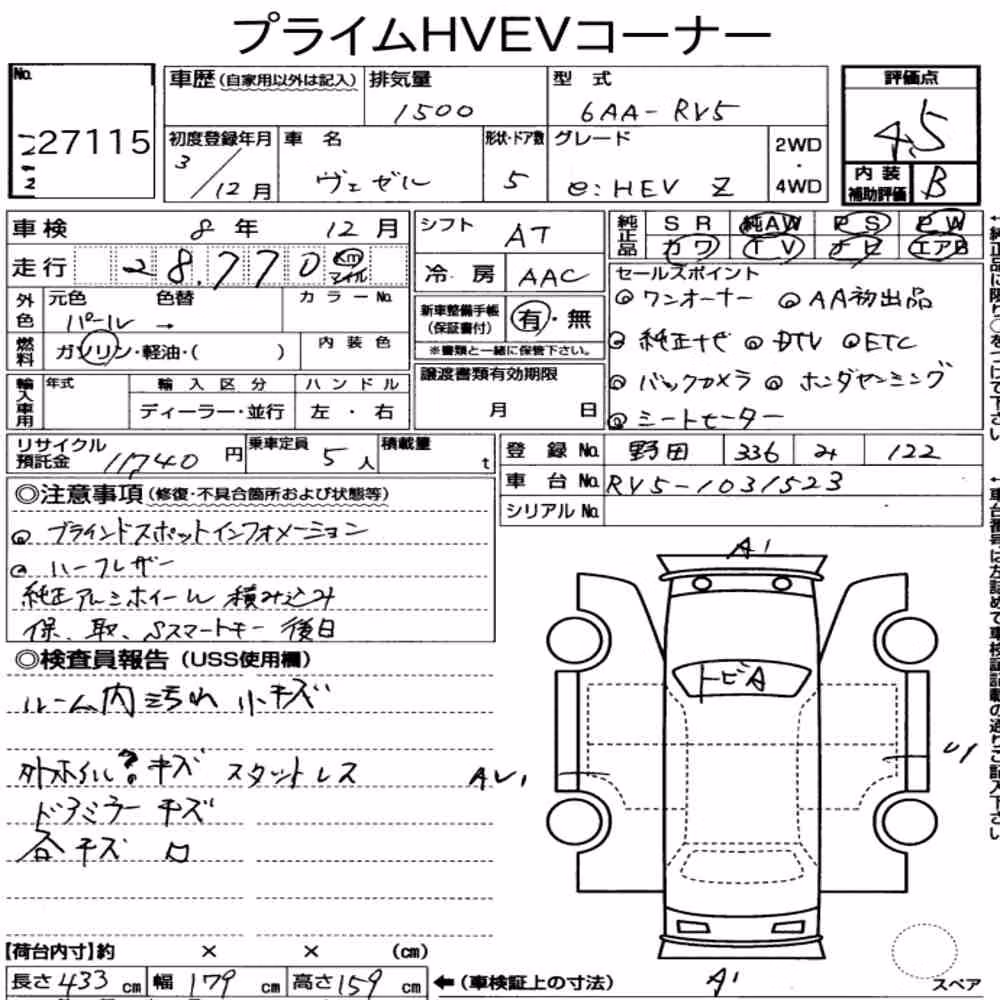 プライムHVEVコーナー
No.
27115
車歴(自家用以外は記入)
排気量
1500
型 式
6AA-RV5
評価点
4.5
初度登録年月
3/12月
車 名
ヴェゼル
形状・ドア数
5
グレード
e:HEV Z
2WD
・
4WD
内 装
補助評価
B
車検 8年 12月
シフト AT
純正品
SR 純AW PS PW
カワ TV ナビ エアB
走行 28,770 km マイル
冷 房 AAC
セールスポイント
◎ワンオーナー ◎AA初出品
◎純正ナビ ◎DTV ◎ETC
◎バックカメラ ◎ホンダセンシング
◎シートヒーター
外色
元色 色替 カラーNo.
パール →
新車整備手帳
(保証書付)
有・無
※書類と一緒に保管下さい。
燃料
ガソリン・軽油・( )
内 装 色
輸入車用
年式
輸 入 区 分
ハ ン ド ル
ディーラー・並行
左 ・ 右
譲渡書類有効期限
月 日
リサイクル
預託金
11740円
乗車定員
5人
積載量
t
登 録 No. 野田 336 み 122
車 台 No. RV5-1031523
シリアル No.
◎注意事項(修復・不具合箇所および状態等)
◎ブラインドスポットインフォメーション
◎ハーフレザー
純正アルミホイール 積み込み
保、取、Sスマートキー 後日
◎検査員報告(USS使用欄)
ルーム内 汚れ 小キズ
外ホイル?キズ スタットレス
ドアミラー キズ
各キズ
A1
トビA
U1
A1
【荷台内寸】約 × × (cm)
長さ433cm 幅179cm 高さ159cm
←(車検証上の寸法)
スペア